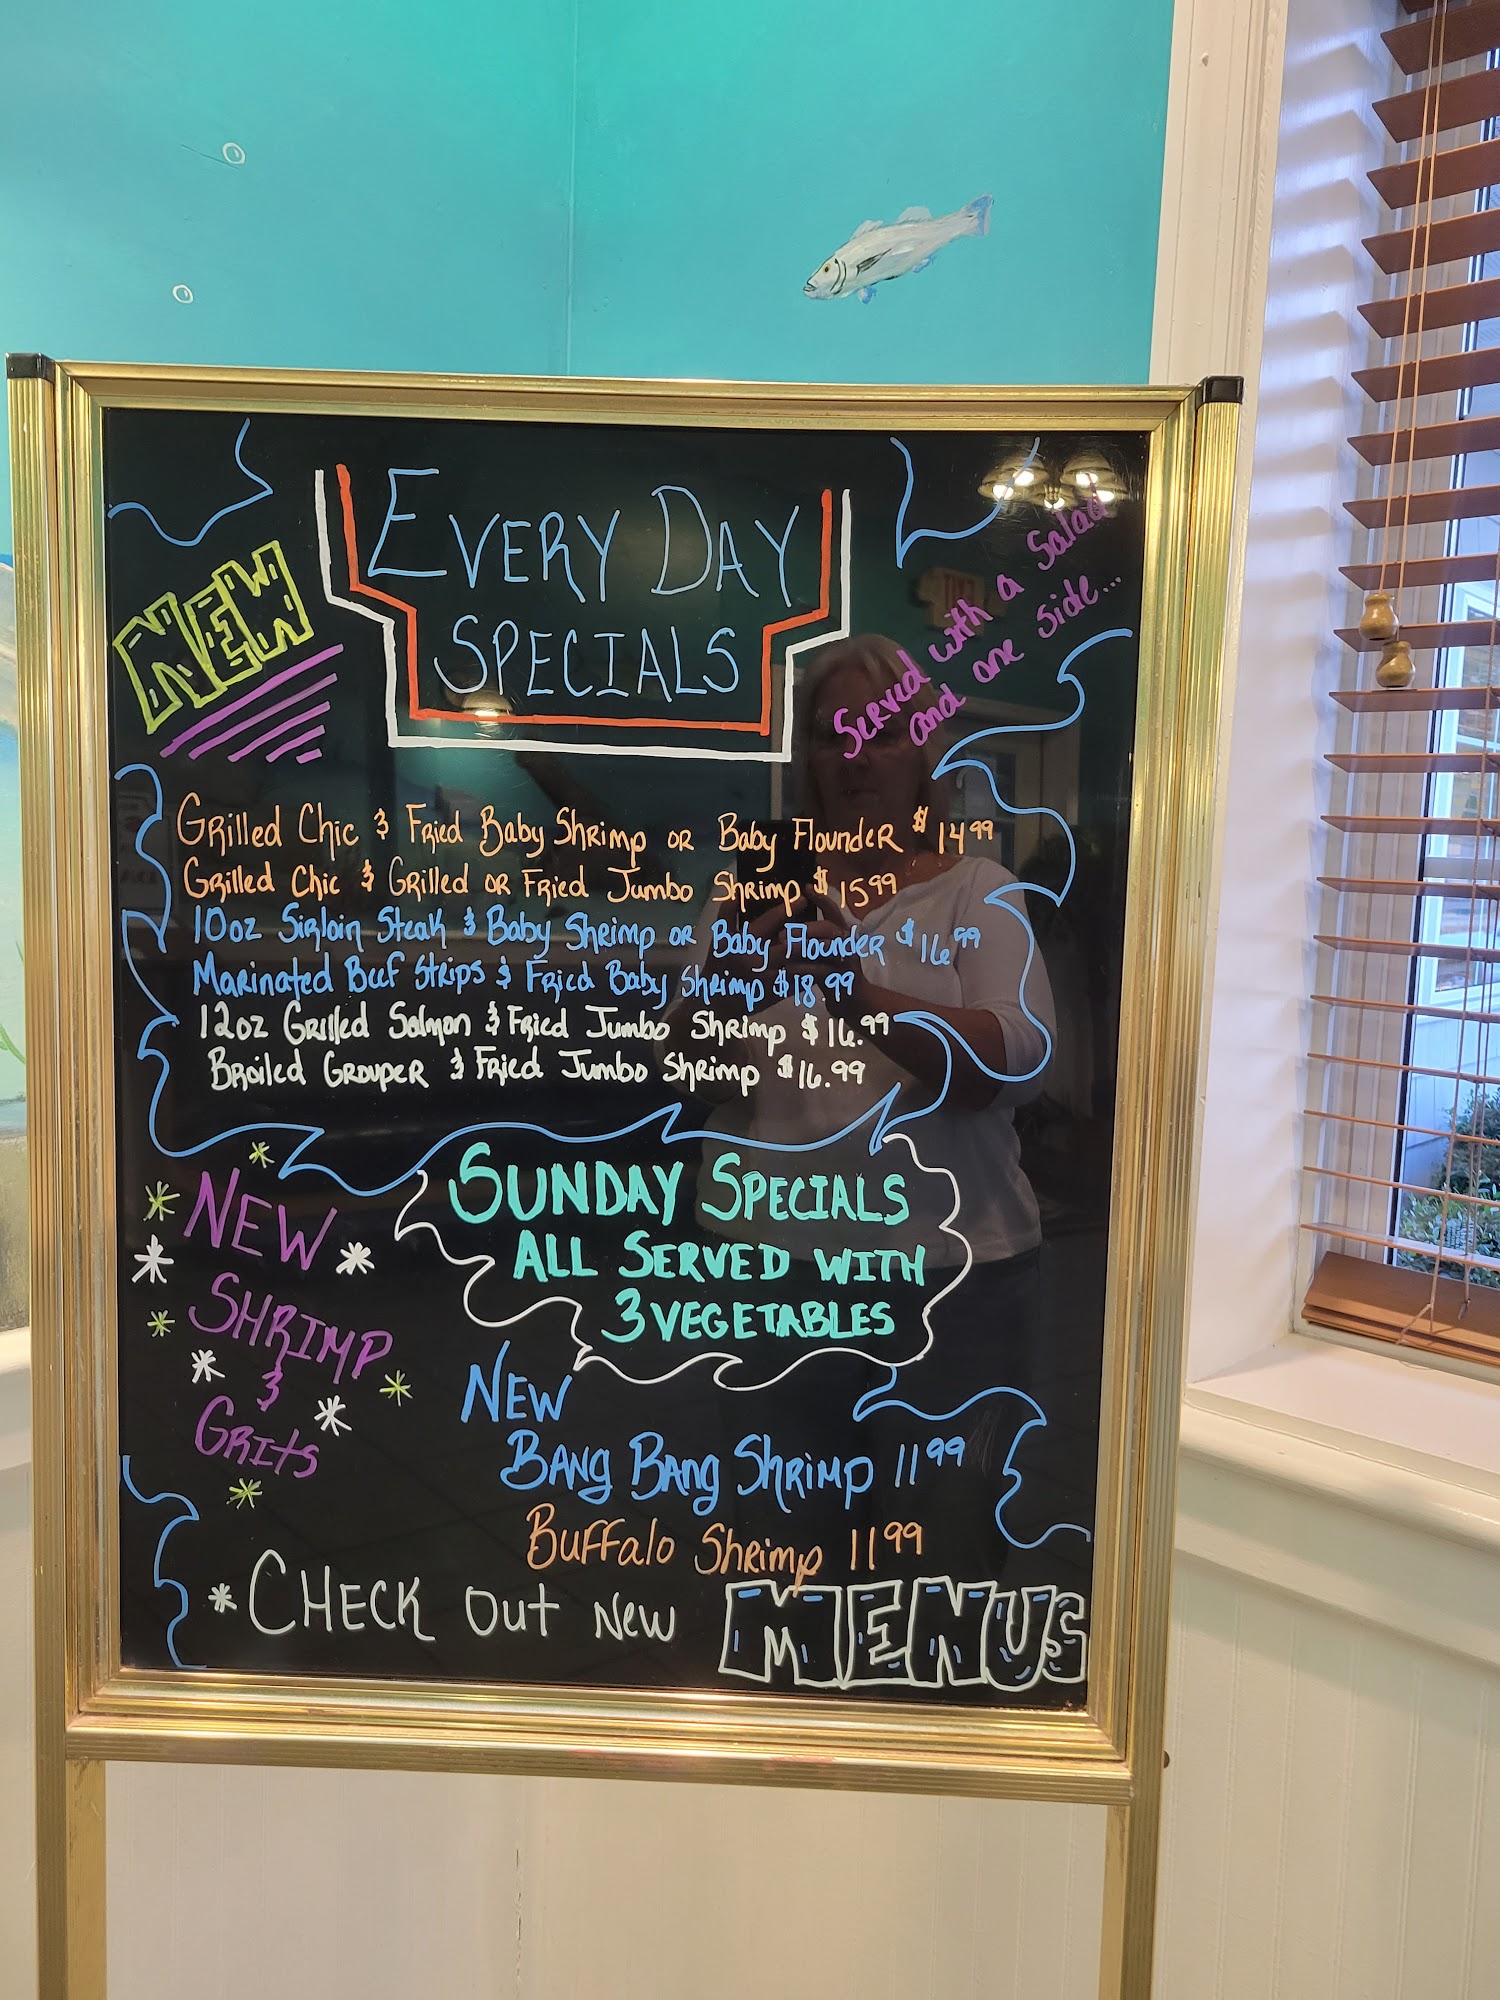 NEW
EVERY DAY
SPECIALS
Served with a Salad
and one side...
Grilled Chic & Fried Baby Shrimp or Baby Flounder $14.99
Grilled Chic & Grilled or Fried Jumbo Shrimp $15.99
10oz Sirloin Steak & Baby Shrimp or Baby Flounder $16.99
Marinated Beef Strips & Fried Baby Shrimp $18.99
12oz Grilled Salmon & Fried Jumbo Shrimp $16.99
Broiled Grouper & Fried Jumbo Shrimp $16.99
SUNDAY SPECIALS
ALL SERVED WITH
3 VEGETABLES
NEW
SHRIMP
&
GRITS
NEW
BANG BANG SHRIMP 11 99
Buffalo Shrimp 11 99
* CHECK OUT NEW MENUS
EXIT